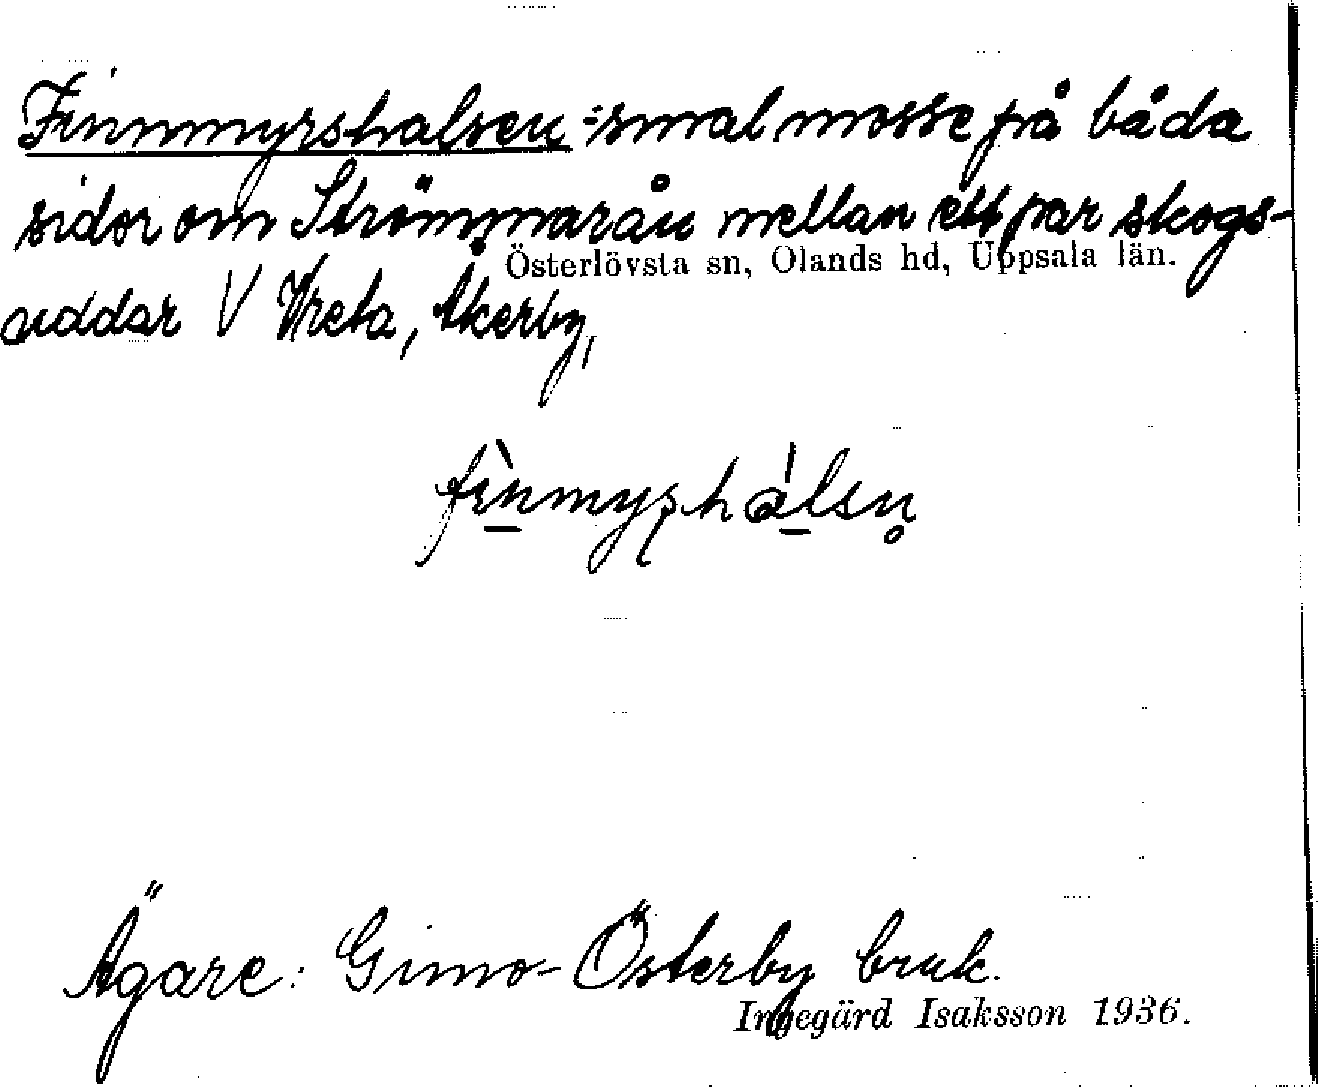 Finnmyrshalsen =smal mosse på båda
sidor om Strömmarån mellan ett par skogs-
Österlövsta sn, Olands hd, Uppsala län.
uddar V Vreta, Åkerby,
fìnmyʂhálsn̥
Ägare: Gimo-Österby bruk.
Ingegärd Isaksson 1936.